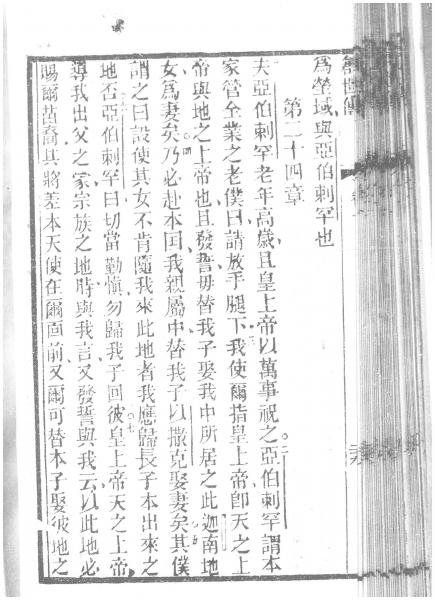 爲塋域、與亞伯剌罕也
第二十四章
夫亞伯剌罕老年高歲、且皇上帝以萬事祝之。二亞伯剌罕謂本
家管全業之老僕曰、請放手腿下、三我使爾指皇上帝、卽天之上
帝與地之上帝也、且發誓毋替我子娶我中所居之此迦南地
女爲妻矣。四乃必赴本国我親屬中、替我子以撒克娶妻矣。五其僕
謂之曰、設使其女不肯隨我來此地者、我應歸長子本出來之
地否。六亞伯剌罕曰、切當勤愼、勿歸我子回彼。七皇上帝天之上帝
導我出父之家宗族之地、時與我言、又發誓與我云、以此地必
賜爾苗裔、其將差本天使在爾面前、又爾可替本子娶彼地之